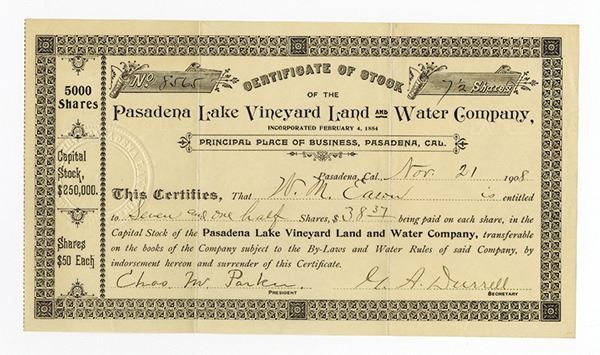 No. 8565
CERTIFICATE OF STOCK
7½ Shares
OF THE
Pasadena Lake Vineyard Land and Water Company,
INCORPORATED FEBRUARY 4, 1884
PRINCIPAL PLACE OF BUSINESS, PASADENA, CAL.
5000
Shares
Capital
Stock,
$250,000.
Shares
$50 Each
Pasadena, Cal., Nov. 21 1908
This Certifies, That W. M. Eason is entitled
to Seven and one half Shares, $38 37 being paid on each share, in the
Capital Stock of the Pasadena Lake Vineyard Land and Water Company, transferable
on the books of the Company subject to the By-Laws and Water Rules of said Company, by
indorsement hereon and surrender of this Certificate.
Chas. W. Parker
PRESIDENT
A. Durrell
SECRETARY